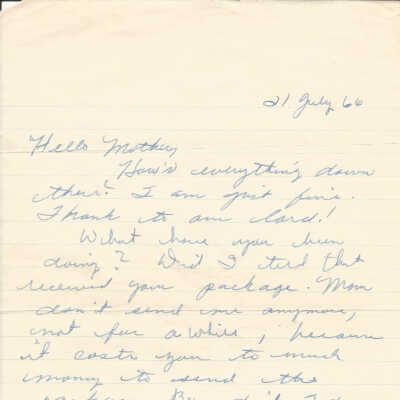 21 July 66
Hello Mother,
How's everything down
there? I am just fine.
Thank to our Lord!
What have you been
doing? Did I told that
received your package. Mom
don't send me anymore,
not for awhile, because
it costs you to much
money to send the
package. But